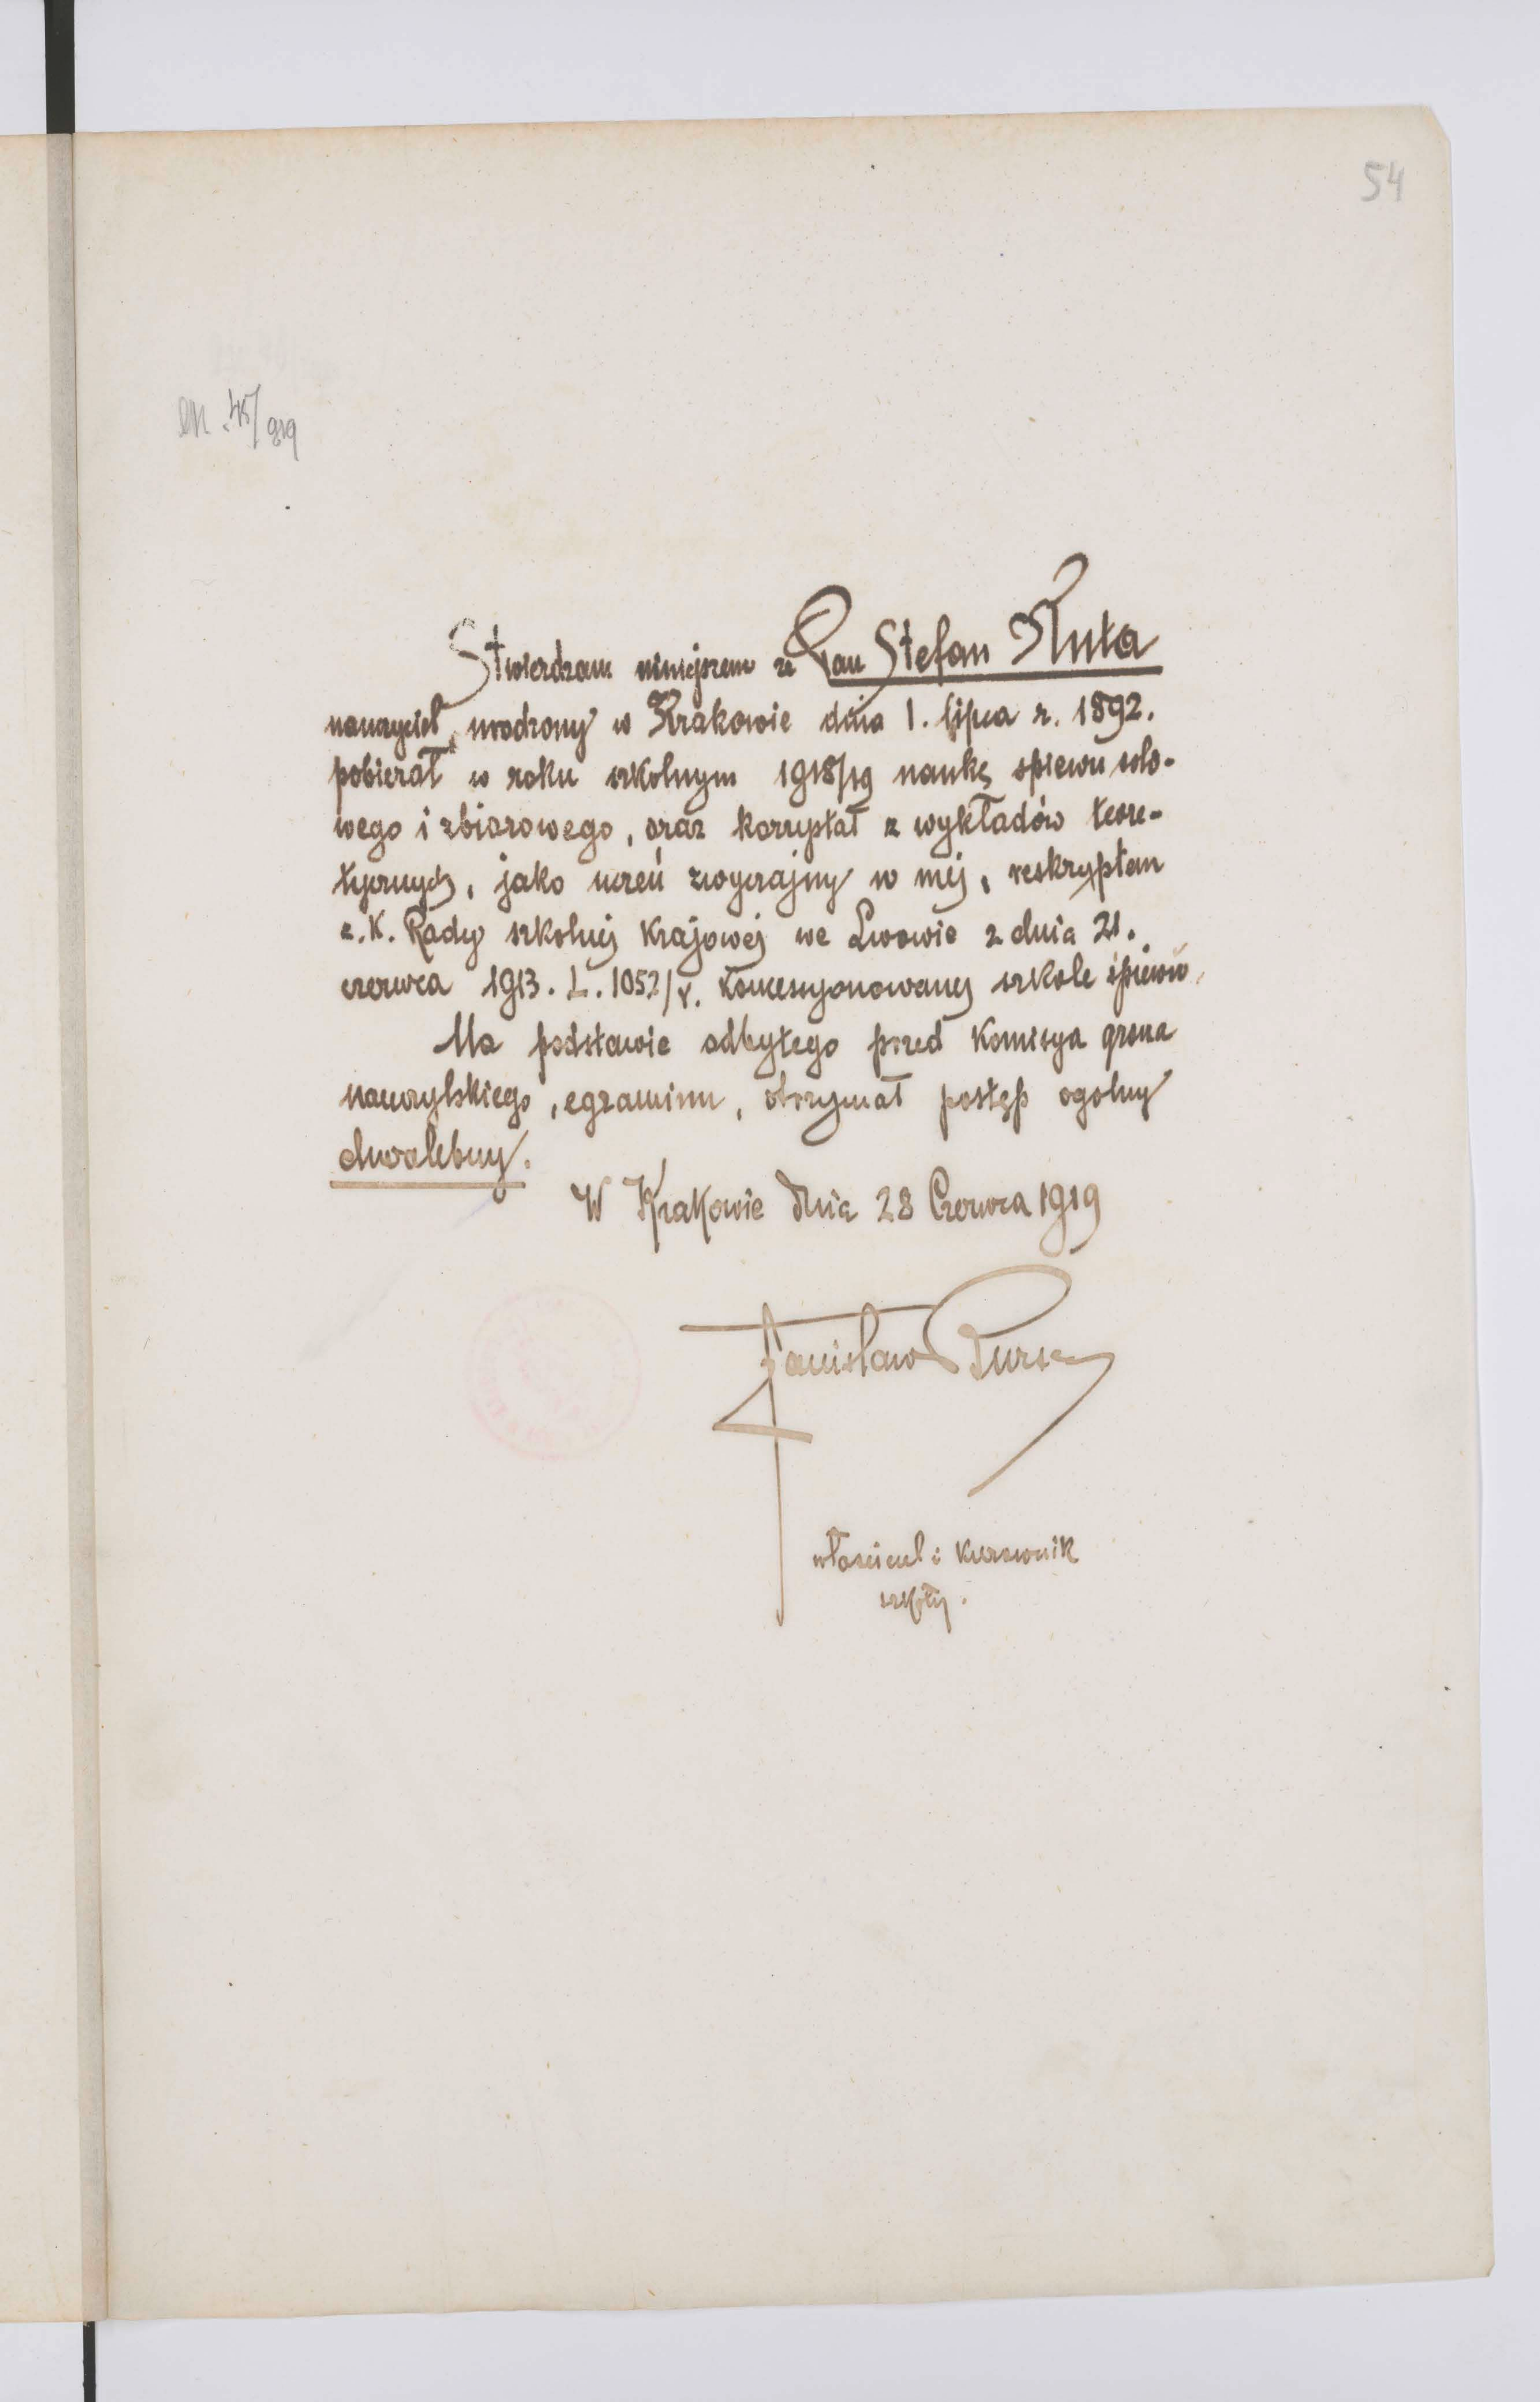 54
45/919
Stwierdzam niniejszem że Pan Stefan Kuta
nauczyciel, urodzony w Krakowie dnia 1. lipca r. 1892.
pobierał w roku szkolnym 1918/19 naukę spiewu solo-
wego i zbiorowego, oraz korzystał z wykładów teore-
tycznych, jako uczeń zwyczajny w mej, reskryptem
c. K. Rady szkolnej Krajowej we Lwowie z dnia 21.
czerwca 1913. L. 1052/V. koncesyonowanej szkole śpiewu.
Na podstawie odbytego przed Komisya grona
nauczylskiego, egzaminu, otrzymał postęp ogolny
chwalebny.
W Krakowie dnia 28 Czerwca 1919
Stanisław Bursa
właściciel i Kierownik
szkoły.